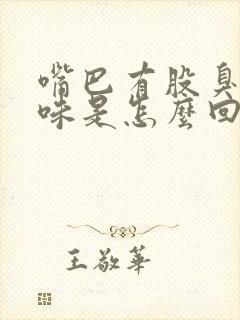 嘴巴有股臭
味是怎麼回
王敬華